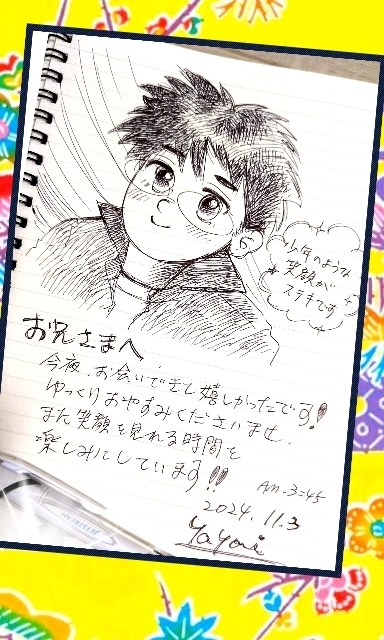 少年のような
笑顔が
ステキです
お兄さまへ
今夜、お会いできし嬉しかったです!
ゆっくりおやすみくださいませ.
また笑顔を見れる時間を
楽しみにしています!!
AM-3:45
2024.11.3
Yayoi
JETSTREAM